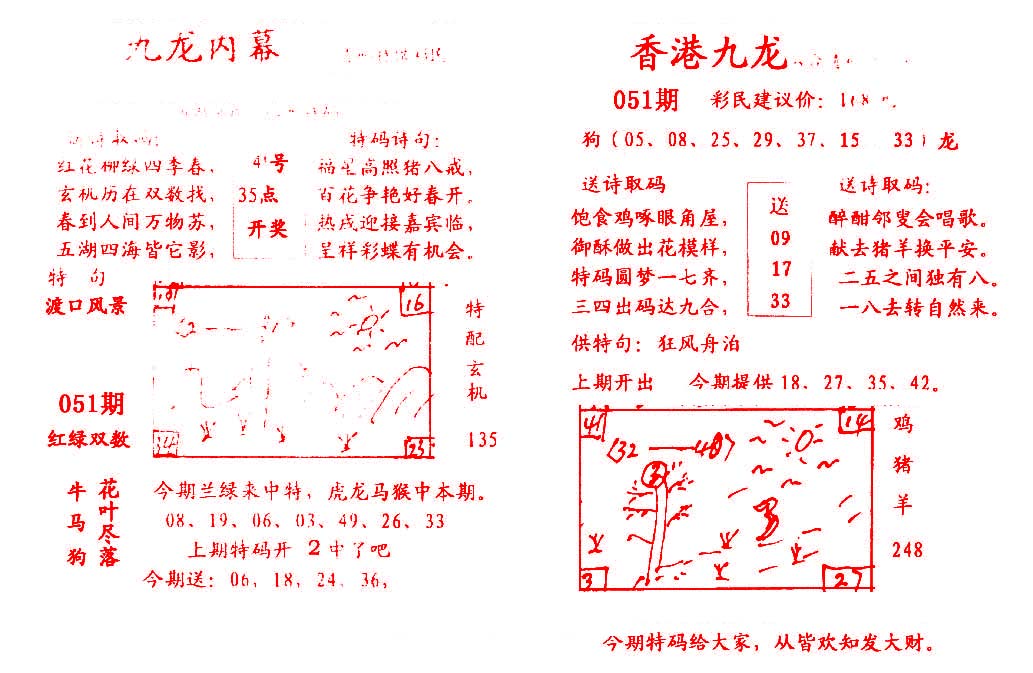 九龙内幕
特码诗句:
红花柳绿四季春,
玄机历在双数找,
春到人间万物苏,
五湖四海皆它影,
41号
35点
开奖
福星高照猪八戒,
百花争艳好春开。
热戌迎接嘉宾临,
呈祥彩蝶有机会。
特 句
渡口风景
051期
红绿双数
16
23
特配玄机
135
牛马狗
花叶尽落
今期兰绿来中特，虎龙马猴中本期。
08、19、06、03、49、26、33
上期特码开 2中了吧
今期送: 06、18、24、36,
香港九龙
051期 彩民建议价:
狗（05、08、25、29、37、15 33）龙
送诗取码
饱食鸡啄眼角屋,
御酥做出花模样,
特码圆梦一七齐,
三四出码达九合,
送
09
17
33
送诗取码:
醉酣邻叟会唱歌。
献去猪羊换平安。
二五之间独有八。
一八去转自然来。
供特句: 狂风舟泊
上期开出 今期提供18、27、35、42。
41
14
32
3
27
鸡
猪
羊
248
今期特码给大家，从皆欢知发大财。